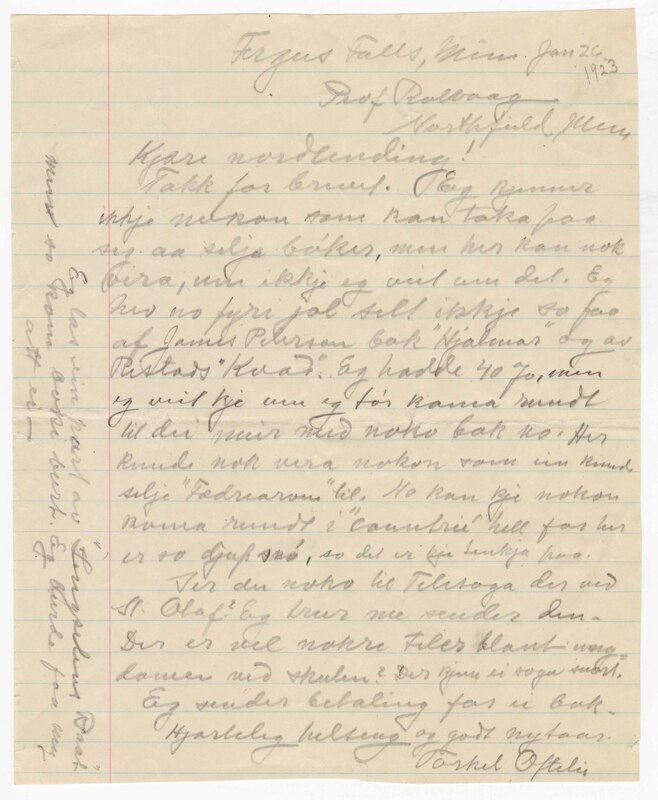 Fergus Falls, Minn. Jan 26
1923
Prof Rølvaag
Northfield, Minn
Kjære nordlending!
Takk for brevet. Eg kjenner
ikkje nokon som kan taka paa
seg aa selja bøker, men her kan nok
vera, um ikkje eg veit um det. Eg
hev no fyri jol selt ikkje so faa
af James Peterson bok "Hjalmar" og av
Ristads "Kvad". Eg hadde 40 %, men
eg veit kje um eg fær koma rundt
til dei meir med noko bok no. Her
kunde nok vera nokon som ein kunde
selje "Fædrearven" til. No kan kje nokon
koma rundt i "countrie" hell for her
er so djup snó, so det er kje tenkja paa.
Ser du noko til Telesoga der ved
St. Olaf? Eg trur me sender den.
Der er vel nokre Teler blant ung-
domen ved skulen? Der kjem ei soga snart.
Eg sender betaling for ei bok.
Hjarteleg helseng og godt nytaar.
Torkel Oftelie
Eg las ein part av "Længselens Baat"
men so kom boki burt. Eg burde faa meg
att ei—